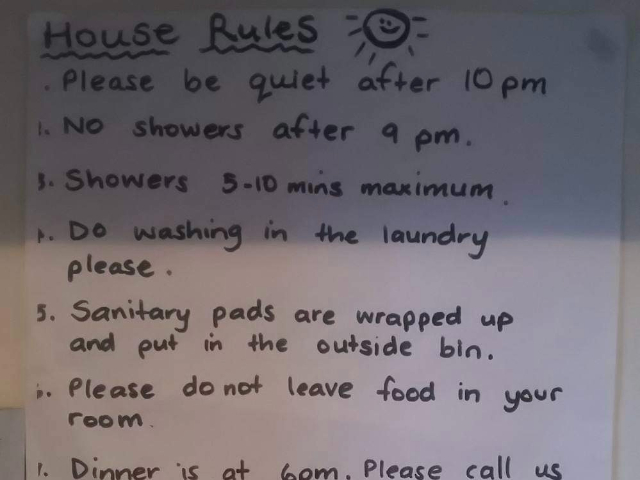 House Rules
. Please be quiet after 10 pm
1. No showers after 9 pm.
3. Showers 5-10 mins maximum.
. Do washing in the laundry
please.
5. Sanitary pads are wrapped up
and put in the outside bin.
. Please do not leave food in your
room.
. Dinner is at 6pm. Please call us